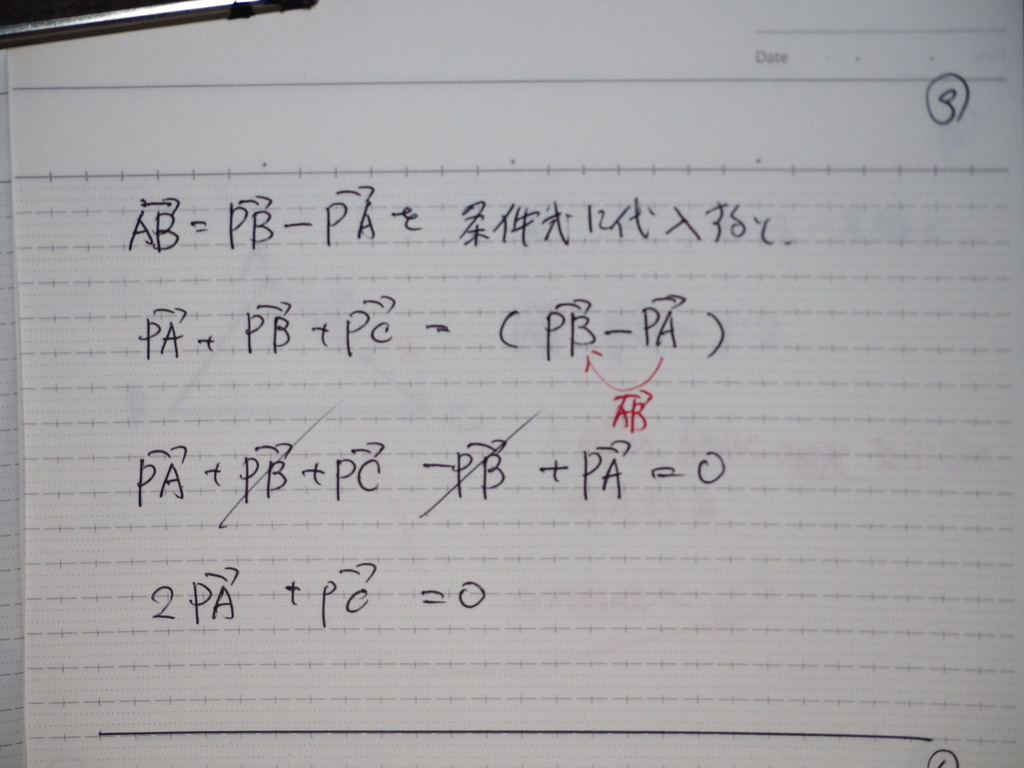 Date
③
$\overrightarrow{AB} = \overrightarrow{PB} - \overrightarrow{PA}$ を 条件式に代入すると.
$\overrightarrow{PA} + \overrightarrow{PB} + \overrightarrow{PC} = (\overrightarrow{PB} - \overrightarrow{PA})$
$\overrightarrow{AB}$
$\overrightarrow{PA} + \overrightarrow{PB} + \overrightarrow{PC} - \overrightarrow{PB} + \overrightarrow{PA} = 0$
$2\overrightarrow{PA} + \overrightarrow{PC} = 0$